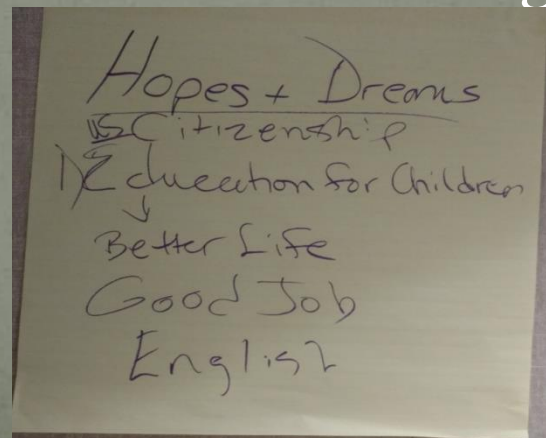 Hopes + Dreams
US Citizenship
1) Education for Children
↓
Better Life
Good Job
English